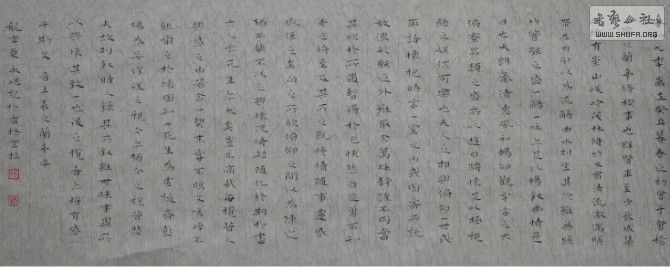 書藝公社
WWW.SHUFA.ORG
九年歲在癸丑暮春之初會于會稽
之蘭亭修禊事也羣賢畢至少長咸集
有崇山峻領茂林脩竹又有清流激湍映
帶左右引以為流觴曲水列坐其次雖無絲
竹管弦之盛一觴一詠亦足以暢敘幽情是
日也天朗氣清惠風和暢仰觀宇宙之大
俯察品類之盛所以遊目騁懷足以極視
聽之娛信可樂也夫人之相與俯仰一世或
取諸懷抱悟言一室之內或因寄所託
放浪形骸之外雖趣舍萬殊靜躁不同當
其欣於所遇暫得於己快然自足曾不知
老之將至及其所之既倦情隨事遷感
慨係之矣向之所欣俯仰之間以為陳迹
猶不能不以之興懷況脩短隨化終期於盡
古人云死生亦大矣豈不痛哉每攬昔人
興感之由若合一契未嘗不臨文嗟悼不
能喻之於懷固知一死生為虛誕齊彭
殤為妄作後之視今亦由今之視昔悲
夫故列敘時人錄其所述雖世殊事異所
以興懷其致一也後之攬者亦將有感
于斯文 晉王羲之蘭亭序
龍年夏永德記於香格里拉